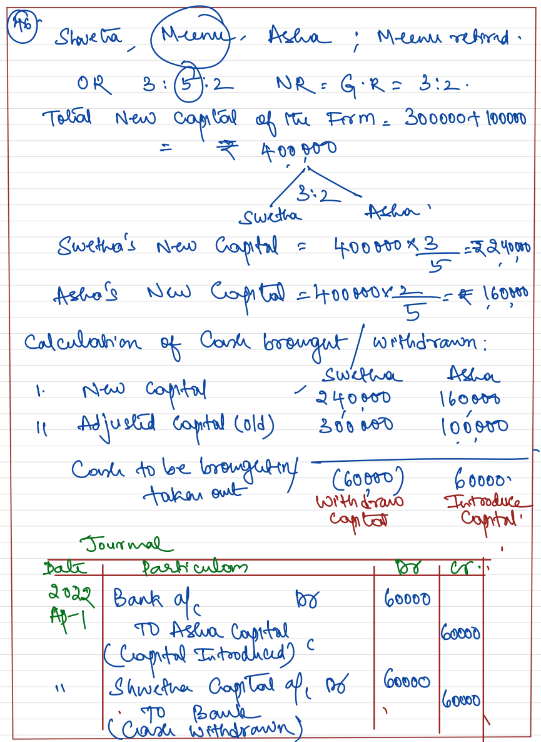 46 Shwetha, Meenu, Asha ; Meenu retired.
OR 3 : 5 : 2 NR = G.R = 3:2.
Total New Capital of the Firm = 300000 + 100000
= ₹ 400,000
3:2
Swetha Asha
Swetha's New Capital = 400000 × 3/5 = ₹240,000
Asha's New Capital = 400000 × 2/5 = ₹ 160,000
Calculation of Cash brought / withdrawn :
Swetha Asha
1. New Capital 240,000 160000
11 Adjusted Capital (old) 300,000 100,000
Cash to be brought in/ taken out (60,000) 60000
Withdraw Capital Introduce Capital
Journal
Date Particulars Dr Cr.
2022 Ap-1 Bank a/c Dr 60000
TO Asha Capital 60000
(Capital Introduced)
" Shwetha Capital a/c Dr 60000
TO Bank 60000
(Cash withdrawn)